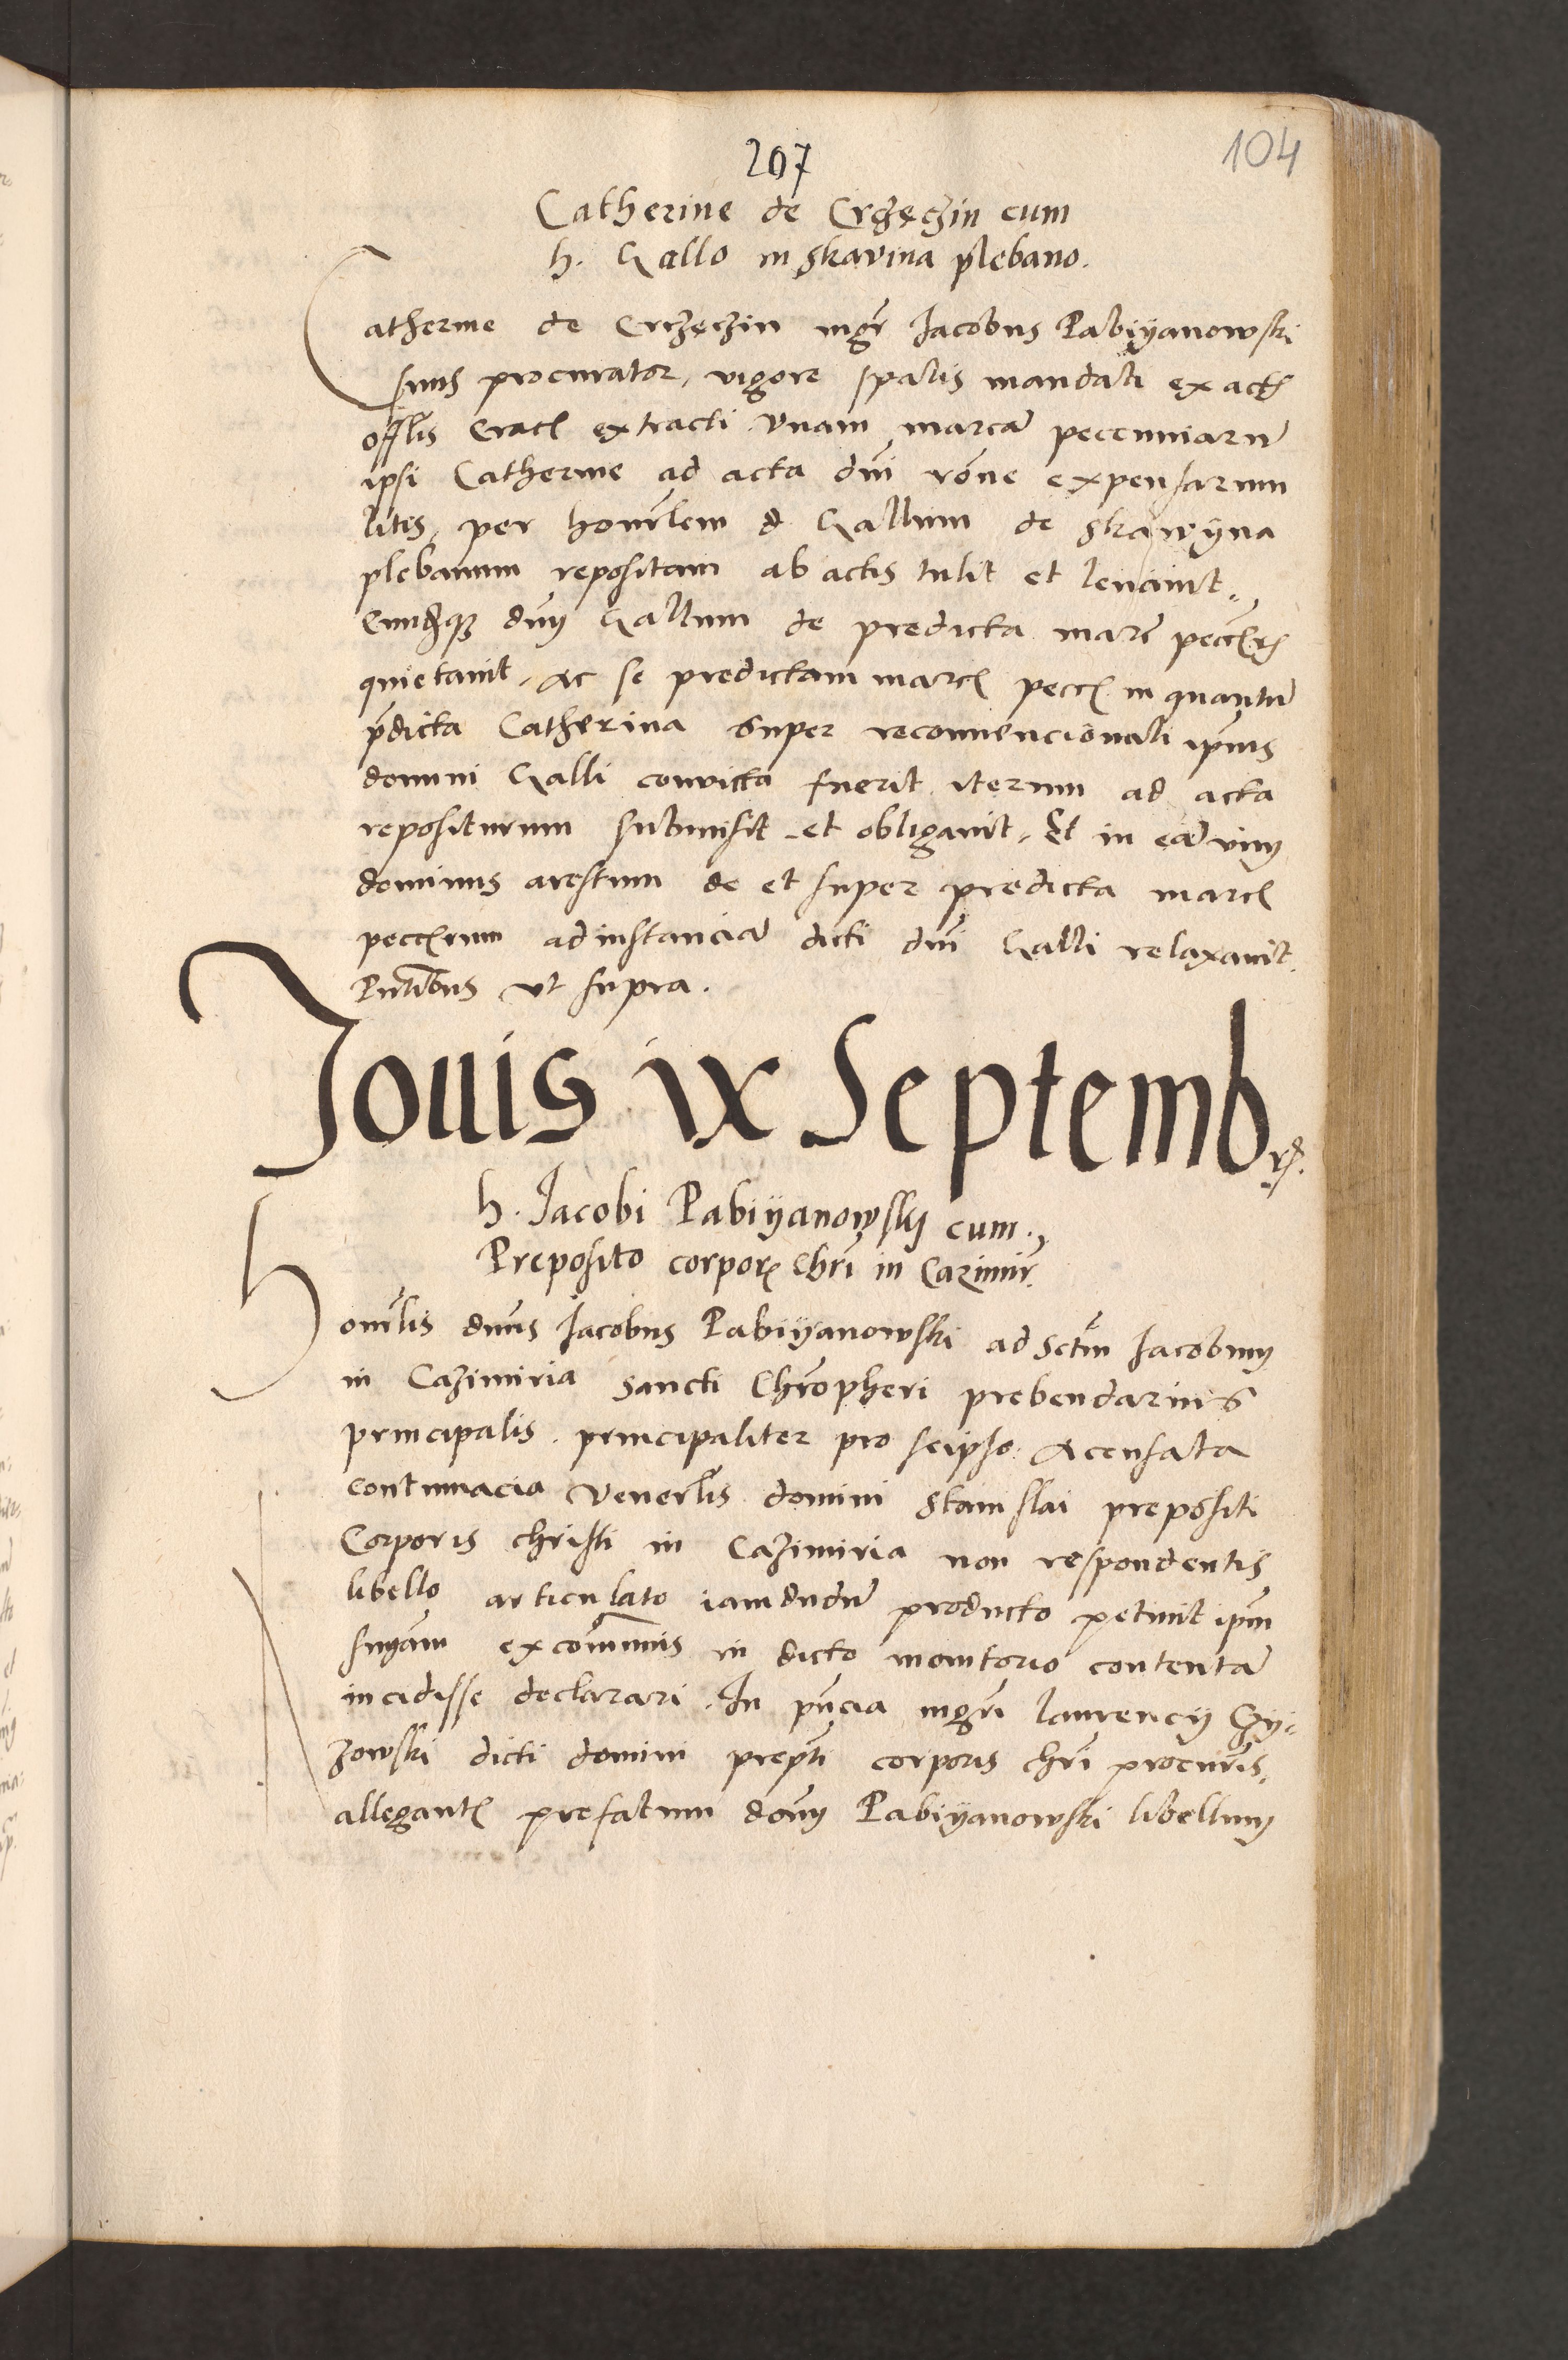 207
104
Catherine de Crzęczin cum
h. Gallo in Skavina plebano.
Catherine de Crzęczin mgr Jacobus Pabiyanowski
suus procurator, vigore spalis mandati ex actis
offlis Crac extracti Vnam marcã peccuniarũ
ipsi Catherine ad acta dni rõne expensarum
litis, per honorlem d Gallum de Skawyna
plebanum repositam ab actis tulit et levavit.
Eundẽque dnum Gallum de predicta marca pecc
quietavit, Ac se predictam marc pecc in quantũ
pdicta Catherina super reconvencionali ipius
domini Galli convicta fuerit iterum ad acta
repositurum submisit et obligavit, Et in eadvim
dominus arestum de et super predicta marc
peccrum ad instanciã dicti dni Galli relaxavit.
Pntibus vt supra.
Jouis ix Septembr.
h. Jacobi Pabiyanowski cum
Preposito corporis Chri in Cazimir.
Honorlis dnus Jacobus Pabiyanowski ad Sctum Jacobum
in Cazimiria Sancti Chrophori prebendarius
principalis principaliter pro seipso Accusata
contumacia Venerlis domini Stanislai prepositi
Corporis christi in Cazimiria non respondentis
libello articulato iamdudũ producto petiuit ipm
snyam excommunis in dicto monitorio contentã
incidisse declarari. In pncia mgri Laurencij Czy-
zowski dicti domini prepti corporis chri procuris.
allegantis prefatum dnum Pabiyanowski libellum